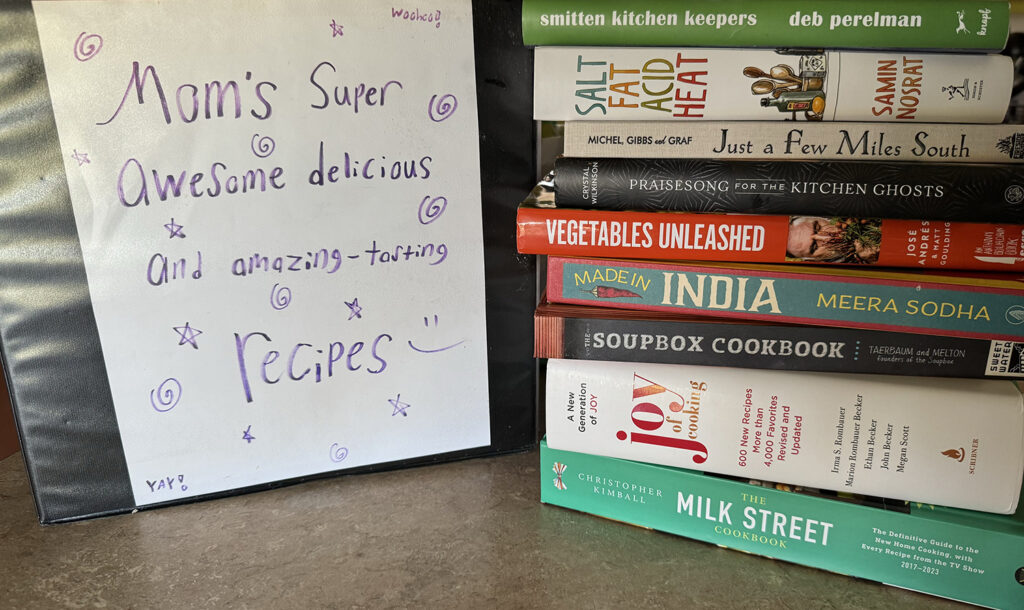 Woohoo!
Mom's Super
Awesome delicious
And amazing-tasting
recipes
YAY!
smitten kitchen keepers deb perelman knopf
SALT
FAT
ACID
HEAT
SAMIN
NOSRAT
MICHEL, GIBBS and GRAF Just a Few Miles South
CRYSTAL
WILKINSON
PRAISESONG FOR THE KITCHEN GHOSTS
VEGETABLES UNLEASHED
JOSÉ
ANDRÉS
& MATT
GOULDING
AN
ANTHONY
BOURDAIN
BOOK
MADE IN INDIA MEERA SODHA
THE SOUPBOX COOKBOOK
TAERBAUM and MELTON
founders of the Soupbox
SWEET
WATER
A New
Generation
of JOY
joy
of
cooking
600 New Recipes
More than
4,000 Favorites
Revised and
Updated
Irma S. Rombauer
Marion Rombauer Becker
Ethan Becker
John Becker
Megan Scott
SCRIBNER
CHRISTOPHER
KIMBALL
THE
MILK STREET
COOKBOOK
The Definitive Guide to the
New Home Cooking, with
Every Recipe from the TV Show
2017–2023